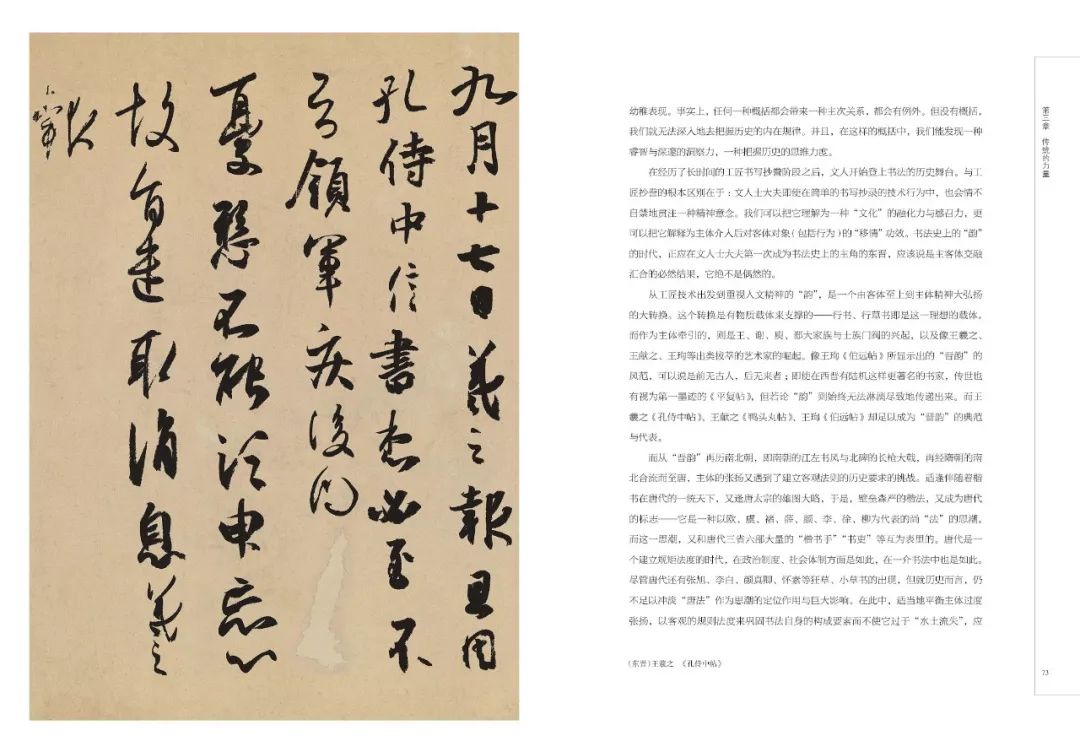 九月十七日羲之報且因
孔侍中信書想必至不
知領軍疾後問
憂懸不能須臾忘心
故旨遣取消息羲之
報
幼稚表现。事实上，任何一种概括都会带来一种主次关系，都会有例外。但没有概括，
我们就无法深入地去把握历史的内在规律。并且，在这样的概括中，我们能发现一种
睿智与深邃的洞察力，一种把握历史的思维力度。
在经历了长时间的工匠书写抄誊阶段之后，文人开始登上书法的历史舞台。与工
匠抄誊的根本区别在于：文人士大夫即使在简单的书写抄录的技术行为中，也会情不
自禁地贯注一种精神意念。我们可以把它理解为一种“文化”的融化力与感召力，更
可以把它解释为主体介入后对客体对象（包括行为）的“移情”功效。书法史上的“韵”
的时代，正应在文人士大夫第一次成为书法史上的主角的东晋，应该说是主客体交融
汇合的必然结果，它绝不是偶然的。
从工匠技术出发到重视人文精神的“韵”，是一个由客体至上到主体精神大弘扬
的大转换。这个转换是有物质载体来支撑的——行书、行草书即是这一理想的载体。
而作为主体牵引的，则是王、谢、庾、郗大家族与士族门阀的兴起，以及像王羲之、
王献之、王珣等出类拔萃的艺术家的崛起。像王珣《伯远帖》所显示出的“晋韵”的
风范，可以说是前无古人，后无来者；即使在西晋有陆机这样更著名的书家，传世也
有视为第一墨迹的《平复帖》，但若论“韵”则始终无法淋漓尽致地传递出来。而王
羲之《孔侍中帖》、王献之《鸭头丸帖》、王珣《伯远帖》却足以成为“晋韵”的典范
与代表。
而从“晋韵”再历南北朝，即南朝的江左书风与北碑的长枪大戟，再经隋朝的南
北合流而至唐，主体的张扬又遇到了建立客观法则的历史要求的挑战。适逢伴随着楷
书在唐代的一统天下，又逢唐太宗的雄图大略，于是，壁垒森严的楷法，又成为唐代
的标志——它是一种以欧、虞、褚、薛、颜、李、徐、柳为代表的尚“法”的思潮。
而这一思潮，又和唐代三省六部大量的“楷书手”“书吏”等互为表里的。唐代是一
个建立规矩法度的时代，在政治制度、社会体制方面是如此，在一介书法中也是如此。
尽管唐代还有张旭、李白、颜真卿、怀素等狂草、小草书的出现，但就历史而言，仍
不足以冲淡“唐法”作为思潮的定位作用与巨大影响。在此中，适当地平衡主体过度
张扬，以客观的规则法度来巩固书法自身的构成要素而不使它过于“水土流失”，应
（东晋）王羲之 《孔侍中帖》
第三章 传统的力量
73